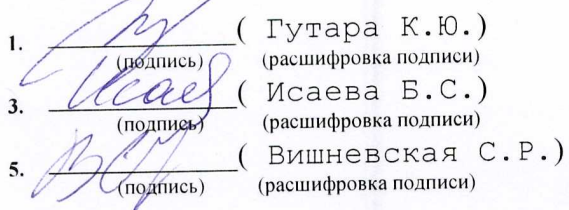 1. ( Гутара К.Ю.)
(подпись) (расшифровка подписи)
3. ( Исаева Б.С.)
(подпись) (расшифровка подписи)
5. ( Вишневская С.Р.)
(подпись) (расшифровка подписи)